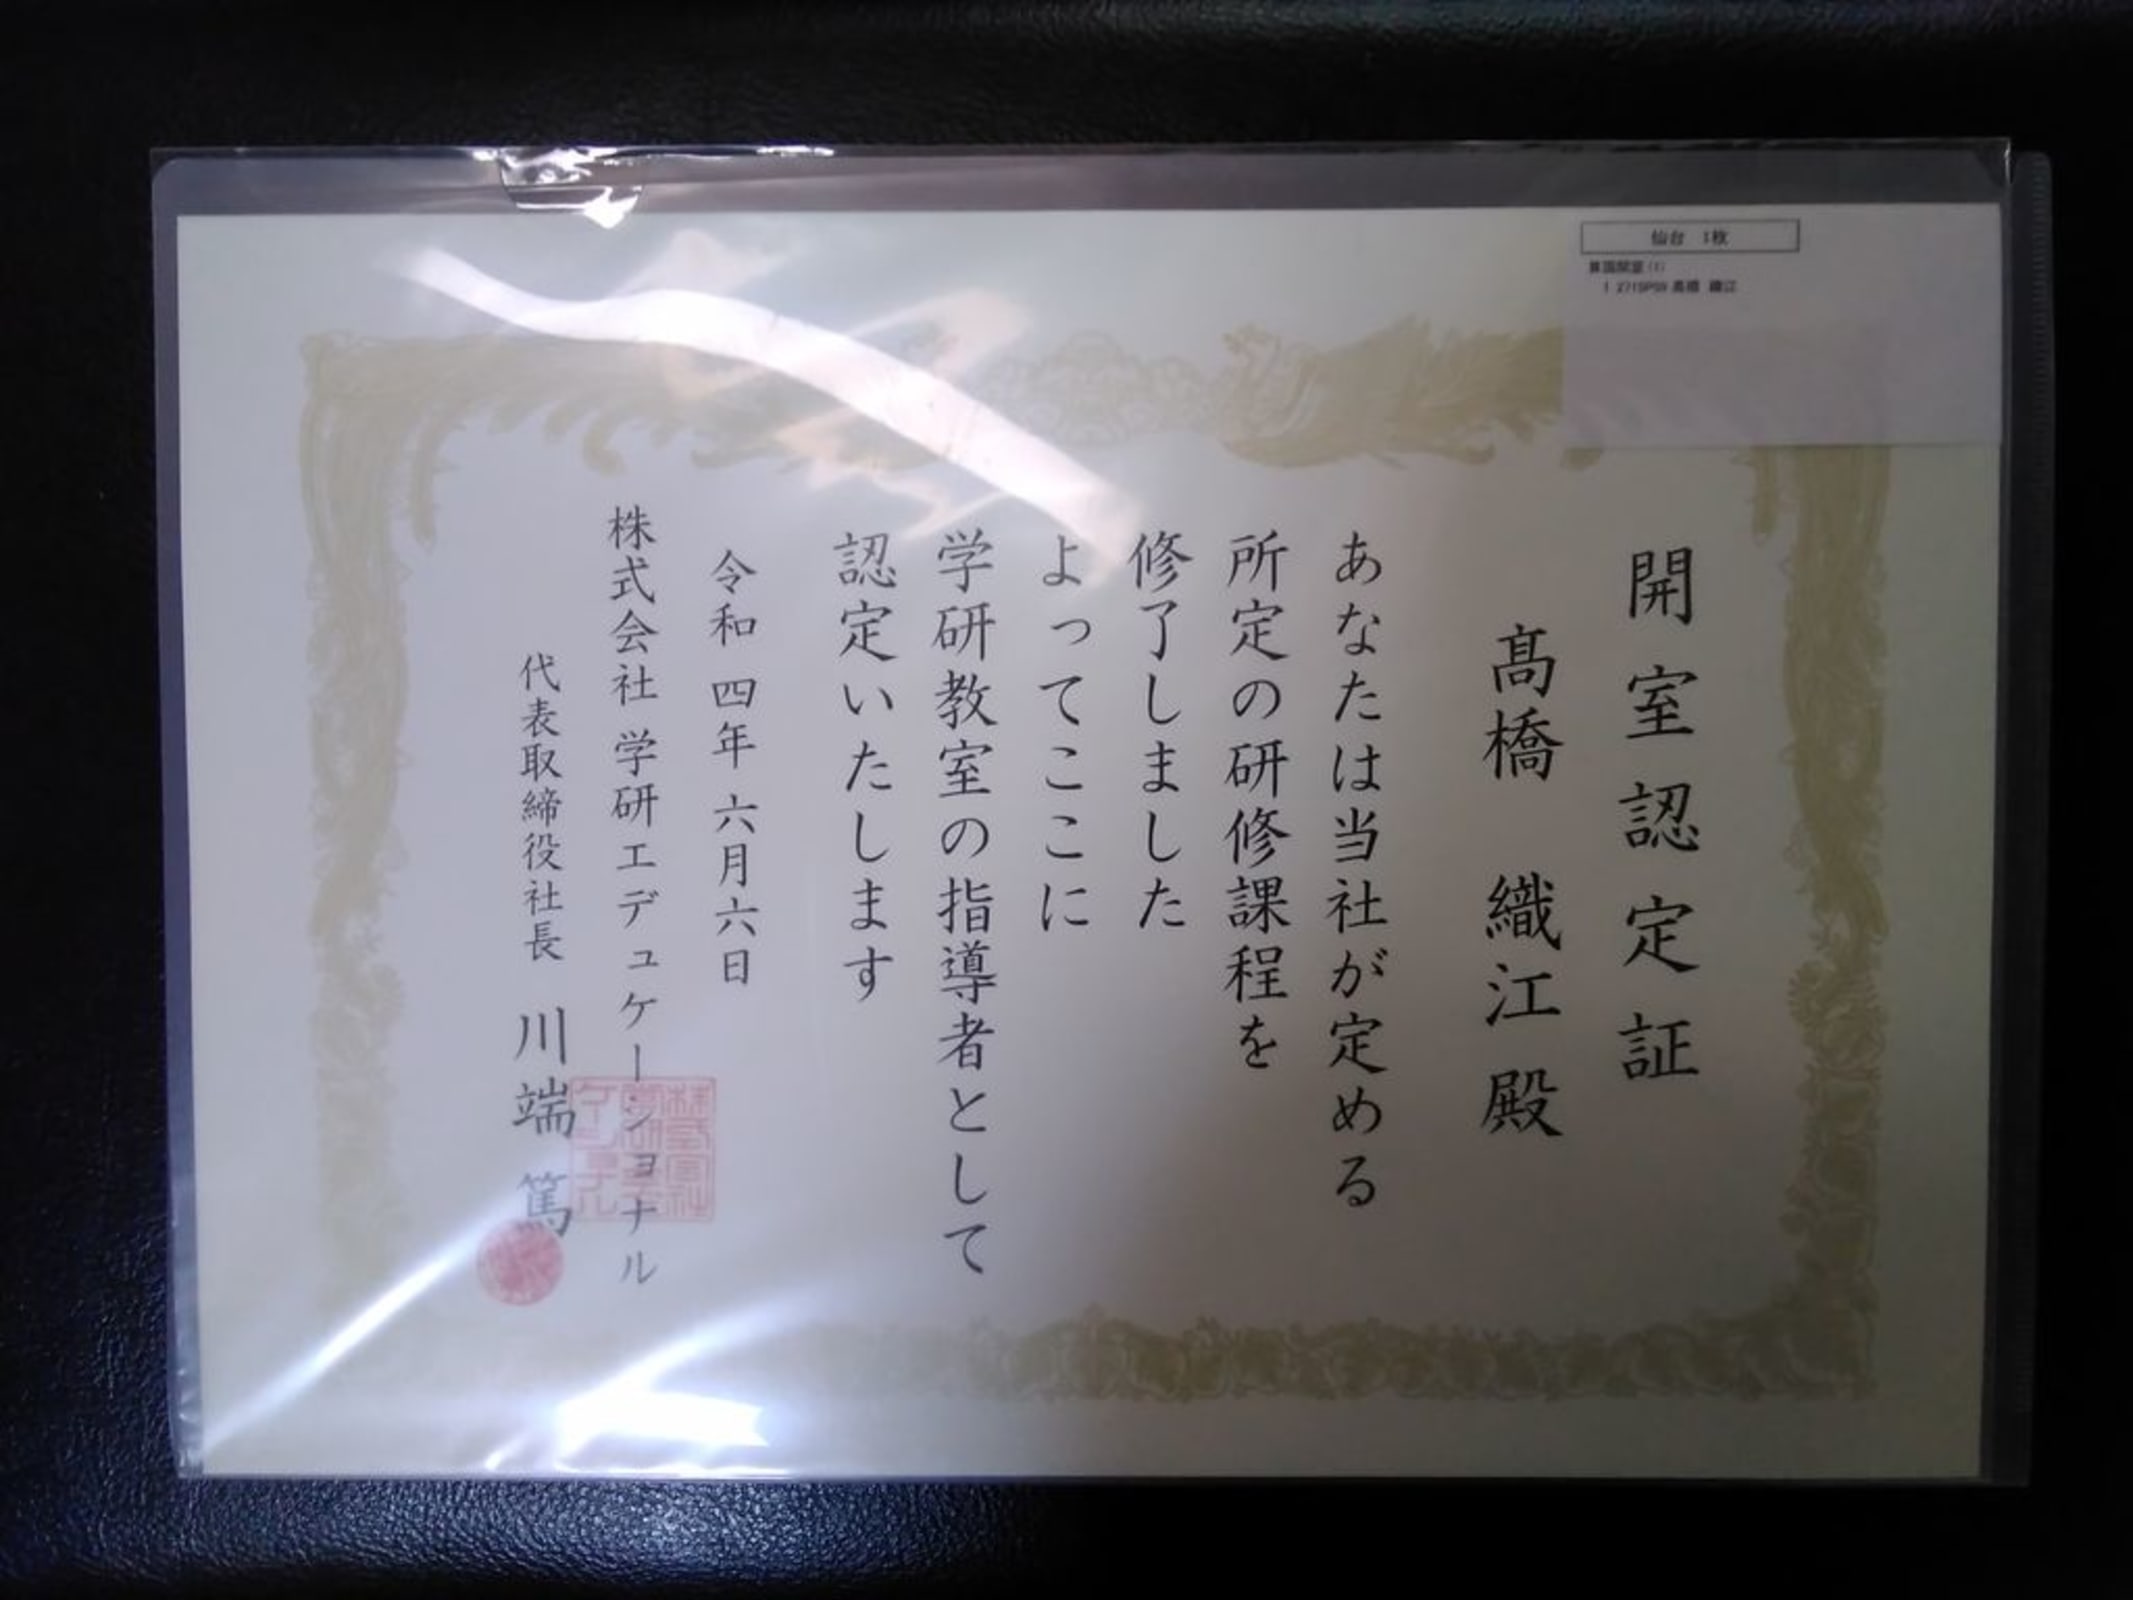 仙台 1枚
算国開室(1)
高橋 織江
開室認定証
髙橋 織江 殿
あなたは当社が定める
所定の研修課程を
修了しました
よってここに
学研教室の指導者として
認定いたします
令和 四年 六月六日
株式会社 学研エデュケーショナル
代表取締役社長 川端 篤